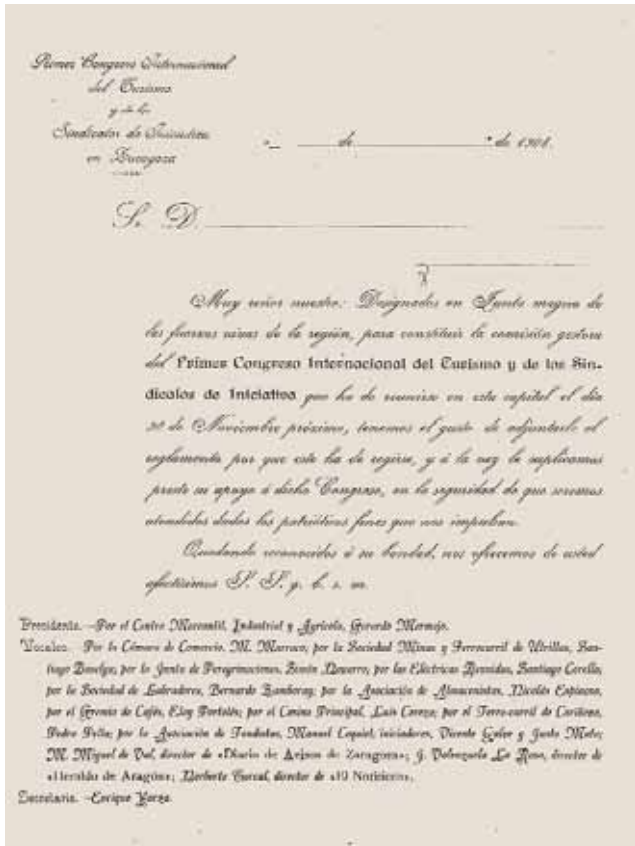 Primer Congreso Internacional
del Turismo
y de los
Sindicatos de Iniciativa
en Zaragoza
de de 1908.
S. D.
Muy señor nuestro: Designados en Junta magna de
las fuerzas vivas de la región, para constituir la comisión gestora
del Primer Congreso Internacional del Turismo y de los Sin-
dicatos de Iniciativa que ha de reunirse en esta capital el día
30 de Noviembre próximo, tenemos el gusto de adjuntarle el
reglamento por que este ha de regirse, y á la vez le suplicamos
preste su apoyo á dicho Congreso, en la seguridad de que seremos
atendidos dados los patrióticos fines que nos impulsan.
Quedando reconocidos á su bondad, nos ofrecemos de usted
afectísimos S. S. q. b. s. m.
Presidente. —Por el Centro Mercantil, Industrial y Agrícola, Gerardo Mermejo.
Vocales. Por la Cámara de Comercio, M. Marraco; por la Sociedad Minas y Ferrocarril de Utrillas, San-
tiago Baselga; por la Junta de Peregrinaciones, Simón Navarro; por las Eléctricas Reunidas, Santiago Corella;
por la Sociedad de Labradores, Bernardo Zamboray; por la Asociación de Almacenistas, Nicolás Espinosa,
por el Gremio de Cafés, Eloy Portolés; por el Casino Principal, Luis Cereza; por el Ferro-carril de Cariñena,
Pedro por la Asociación de Fondistas, Manuel iniciadores, Vicente y Justo
M. Miguel de Val, director de «Diario de Avisos de Zaragoza»; J. Valenzuela La Rosa, director de
«Heraldo de Aragón»; Norberto director de «El Noticiero».
Secretario. —Enrique Yarza.